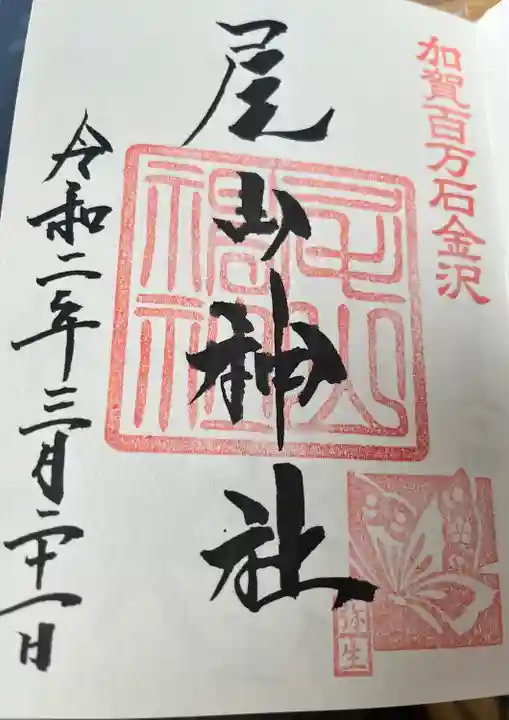 加賀百万石金沢
尾山神社
弥生
令和二年三月二十一日